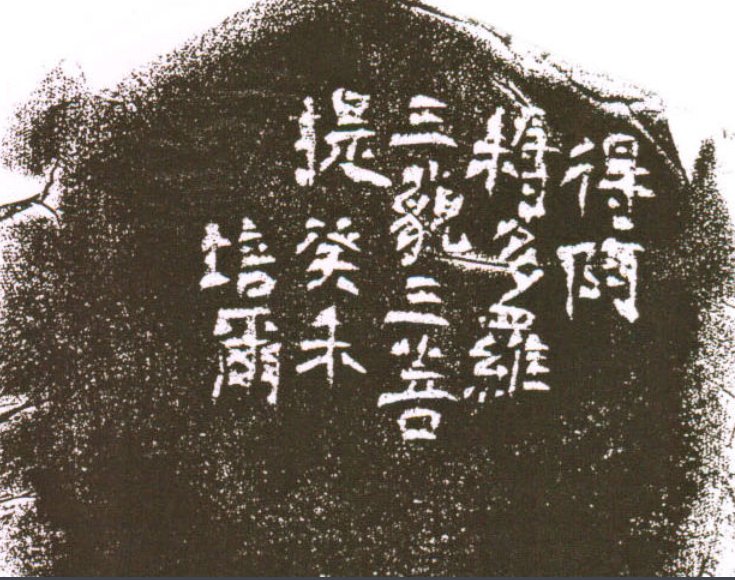 得阿
耨多羅
三藐三菩
提 癸未
培爾